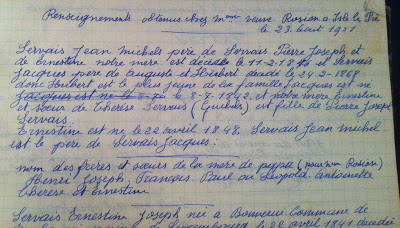 Renseignements obtenus chez Mme veuve Rosion a Isle la Pré
le 23 aout 1951
Servais Jean Michels père de Servais Pierre Joseph et
de ernestine notre mère est décédé le 11-2-18 et Servais
Jacques père de auguste et Hubert décédé le 24-2-1868
donc Hubert est le plus jeune de la famille Jacques est né
le 8-7-1842 et notre mère Ernestine
et soeur de Thérèse Servais (Guebels) est fille de Pierre Joseph
Servais.
Ernestine est né le 22 avril 1848. Servais Jean Michel
est le père de Servais Jacques:
nom des frères et soeurs de la mère de papa (pour mon Rosion)
Henri Joseph, François, Paul ou Léopold, antoinette
Thérèse et Ernestine
Servais Ernestine Joseph née a Bonnerue Commune de
Luxembourg le 22 avril 1841 décédée